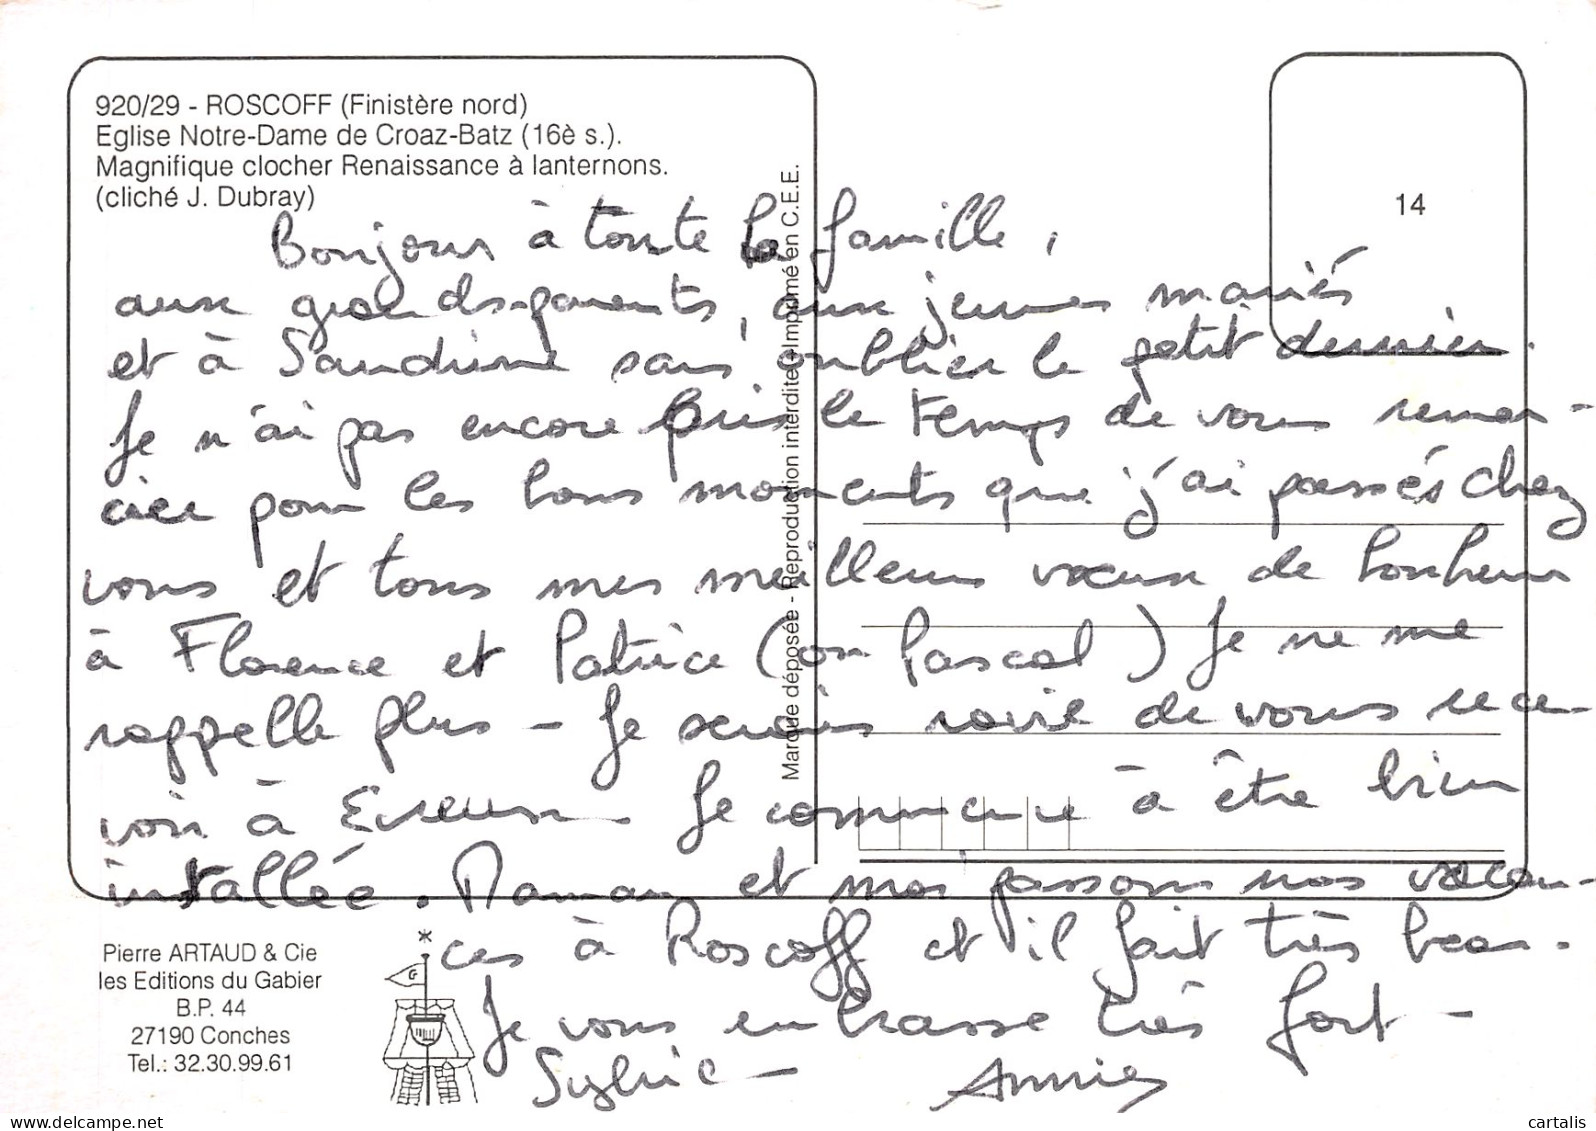 920/29 - ROSCOFF (Finistère nord)
Eglise Notre-Dame de Croaz-Batz (16è s.).
Magnifique clocher Renaissance à lanternons.
(cliché J. Dubray)
14
Marque déposée - Reproduction interdite - Imprimé en C.E.E.
Bonjour à toute la famille,
aux grands-parents, aux jeunes mariés
et à Sandrine sans oublier le petit dernier.
Je n'ai pas encore pris le temps de vous remer-
cier pour les bons moments que j'ai passés chez
vous et tous mes meilleurs vœux de bonheur
à Florence et Patrice (ou Pascal) Je ne me
rappelle plus - Je serais ravie de vous rece-
voir à Evreux - Je commence à être bien
installée. Maman et moi passons nos vacan-
ces à Roscoff et il fait très beau.
Je vous embrasse très fort -
Sylvie - Annie
Pierre ARTAUD & Cie
les Editions du Gabier
B.P. 44
27190 Conches
Tel.: 32.30.99.61
G
www.delcampe.net
cartalis